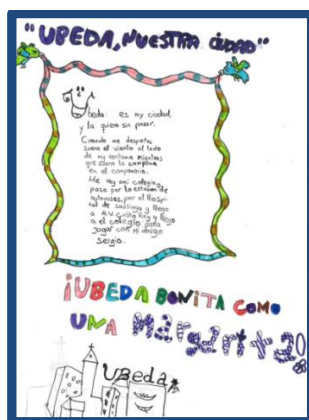 "UBEDA, NUESTRA CIUDAD"
Ubeda: es my ciudad,
y la quiero sin parar.
Cuando me despierto,
suena el viento al lado
de my ventana mientras
que suena la campana
en el campanario.
Me voy ami colegio,
paso por la estacion de
autovuses, por el Hospi-
tal de santiago y llego
a A.V. Cristo Rey y llego
a el colegio para
jugar con mi amigo
sergio.
¡UBEDA BONITA COMO
UNA MARGARITA!
Ubeda